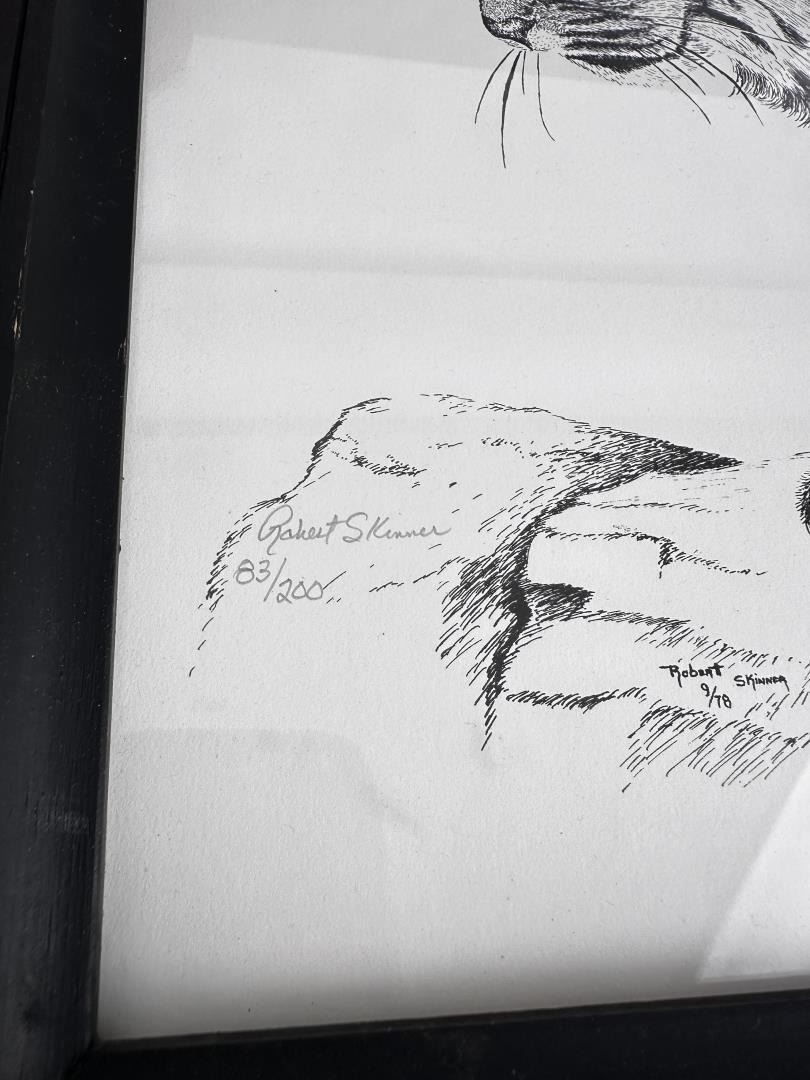 Robert Skinner
83/200
Robert Skinner
9/78